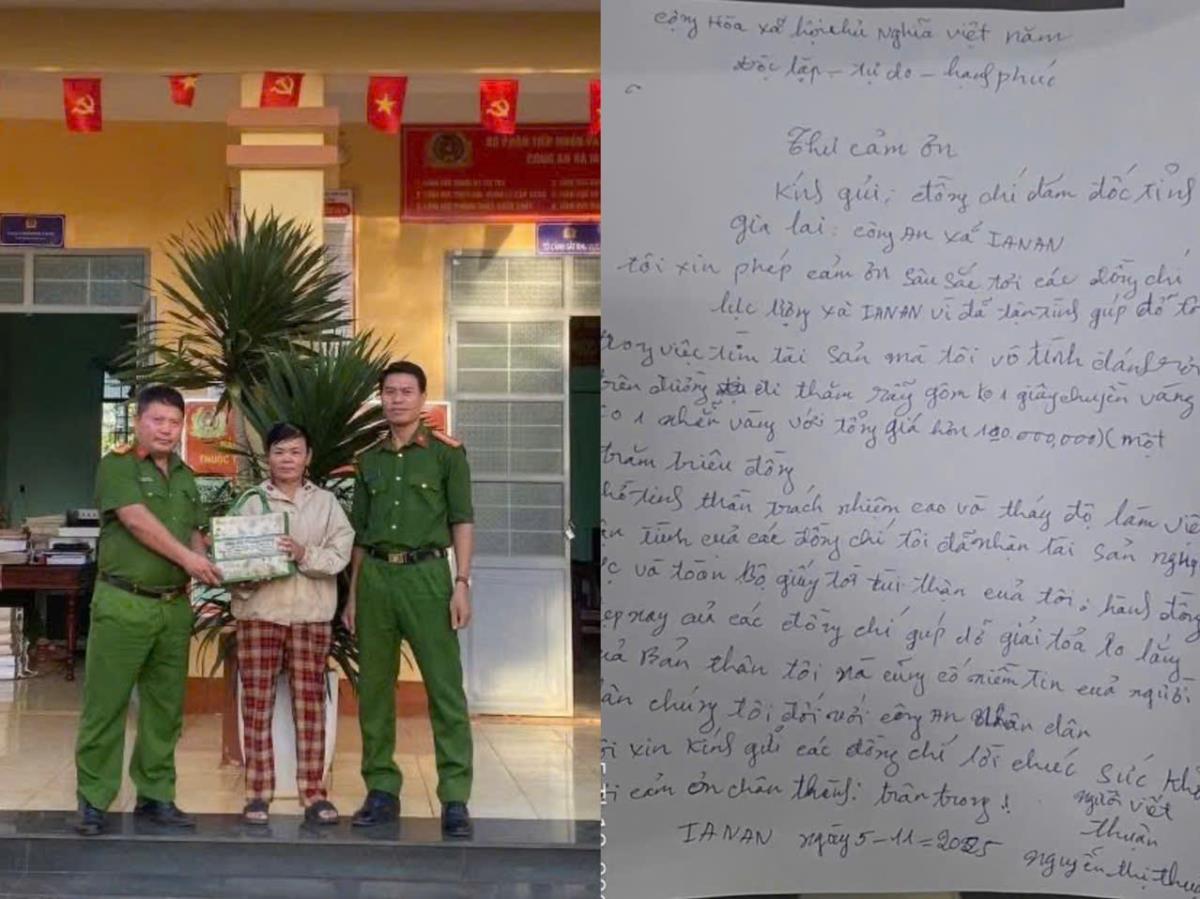 BỘ PHẬN TIẾP NHẬN VÀ
CÔNG AN XÃ IA
THUỘC
cộng Hòa xã hội chủ Nghĩa việt năm
độc lập - tự do - hạnh phúc
Thư cảm ơn
Kính gửi; đồng chí dám đốc tỉnh
gia lai: công An xã IANAN
tôi xin phép cảm ơn sâu sắc tới các đồng chí
lực lượng xã IANAN vì đã tận tình gúp đỡ tô
trong việc tìm tài sản mà tôi vô tình đánh rơi
trên đường đi thăm rẫy gồm có 1 giây chuyền vàng
có 1 nhẫn vàng với tổng giá hơn 100.000,000)(một
trăm triệu đồng
tinh thần trách nhiệm cao và tháy độ làm việ
tình của các đồng chí tôi đã nhận tài sản nguy
và toàn bộ giấy tời tùi thận của tôi; hành động
đẹp này của các đồng chí gúp đỡ giải tỏa lo lắng
của Bản thân tôi mà cũng cố niềm tin của người
dân chúng tôi đối với công An nhân dân
tôi xin kính gửi các đồng chí lời chúc sức khỏ
tôi cảm ơn chân thành: trân trọng!
người viết
thuận
IANAN ngày 5-11=2025
nguyễn thị thu